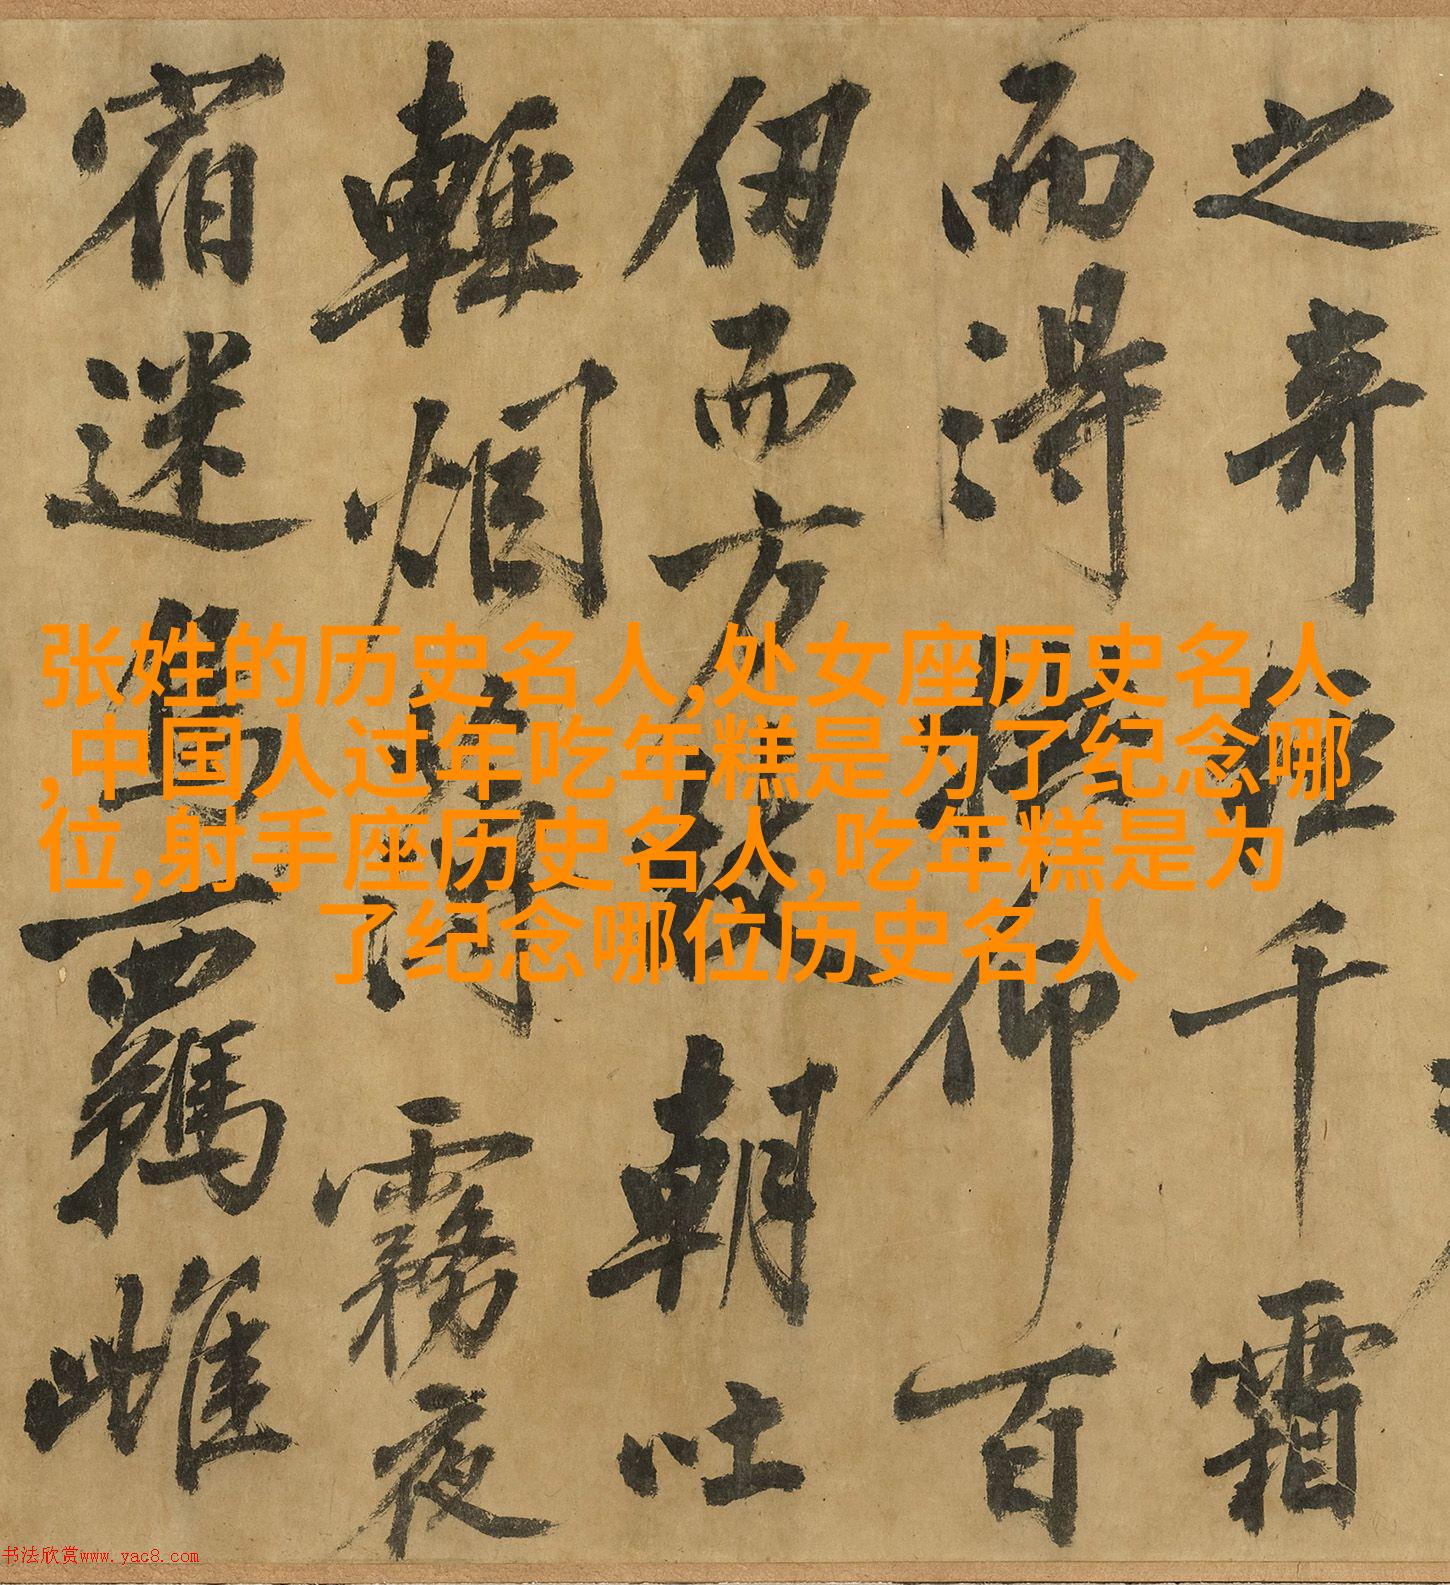 之奇經千霜
而得拱仰百
仞而方枝朝吐
輕烟薄霧夜
宿迷鳥羈雌
张姓的历史名人,处女座历史名人
,中国人过年吃年糕是为了纪念哪
位,射手座历史名人,吃年糕是为
了纪念哪位历史名人
书法欣赏www.yac8.com